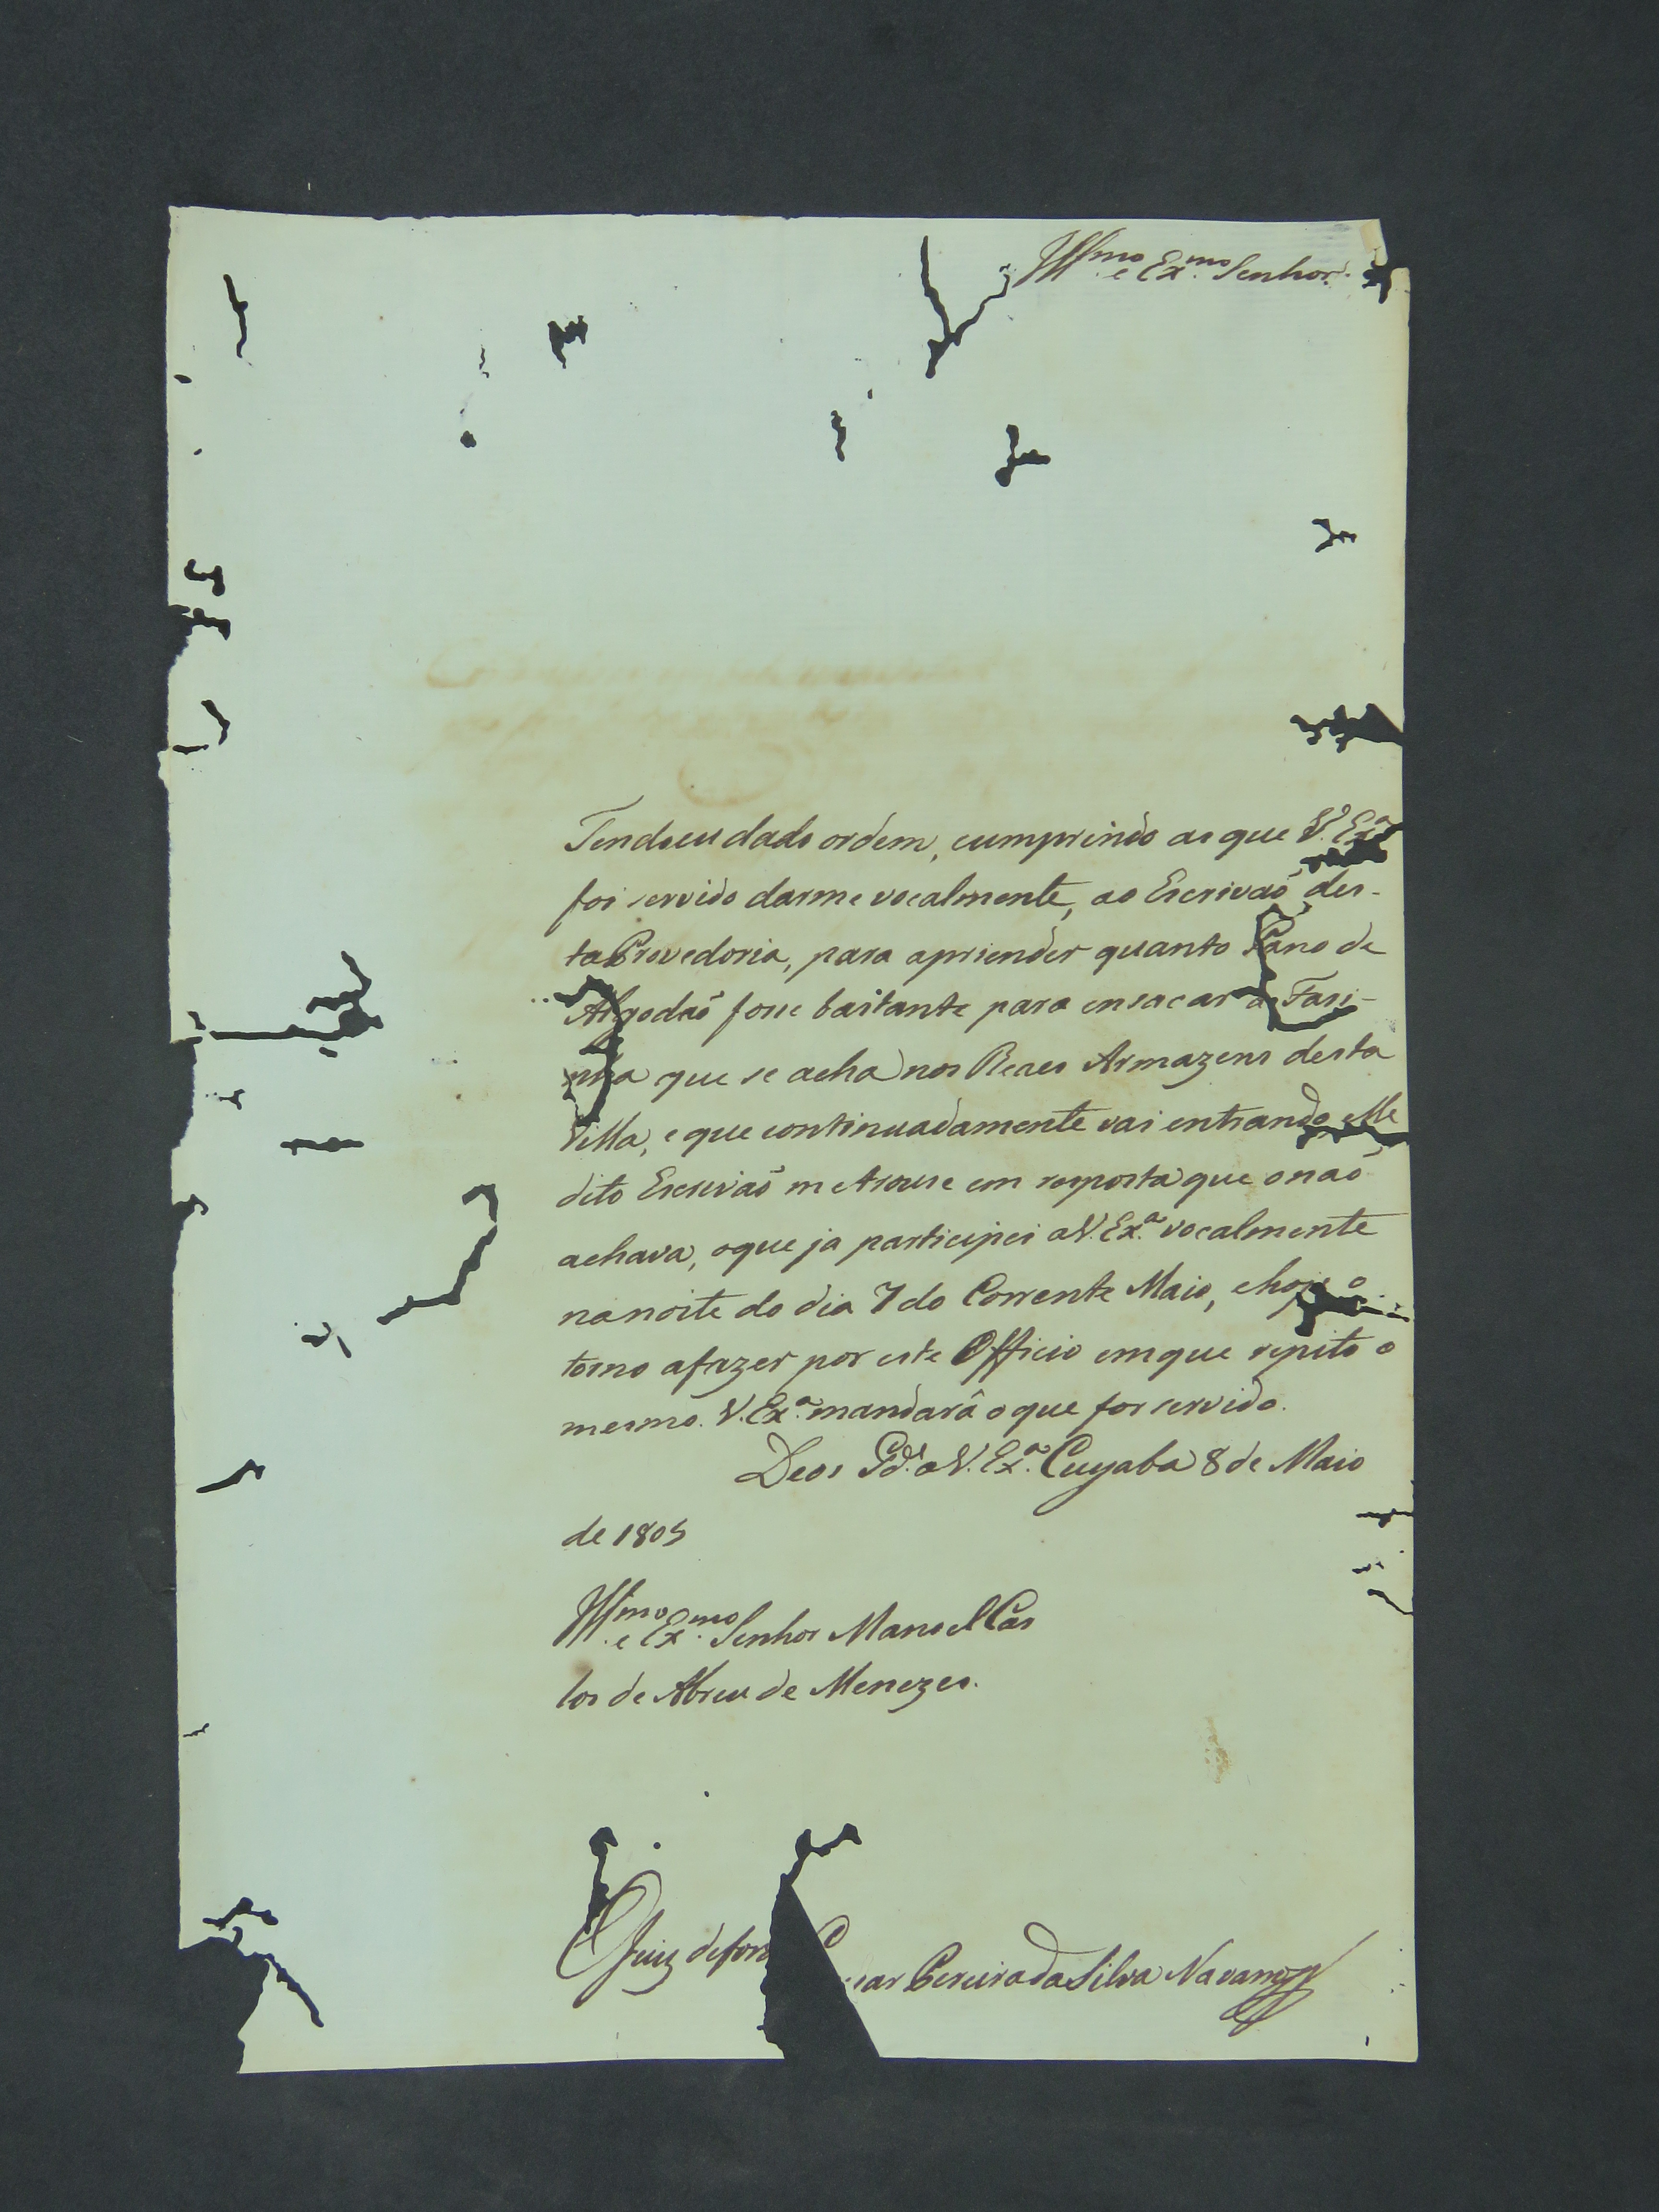 Ill.mo e Ex.mo Senhor.
Tendo eu dado ordem, cumprindo as que V. Ex.a
foi servido darme vocalmente, ao Escrivaõ des-
ta Provedoria, para aprender quanto Pano de
Algodaõ fosse bastante para ensacar a Fari-
nha que se acha nos Reaes Armazens desta
Villa, e que continuadamente vai entrando elle
dito Escrivaõ me trouxe em resposta que o naõ
achava, o que ja participei a V. Ex.a vocalmente
na noite do dia 7 do Corrente Maio, e hoje o
torno a fazer por este Officio em que repito o
mesmo. V. Ex.a mandará o que for servido.
Deos G.de a V. Ex.a Cuyaba 8 de Maio
de 1805
Ill.mo e Ex.mo Senhor Manoel Car
los de Abreu de Menezes.
O Juiz de fora Pereira da Silva Navarro